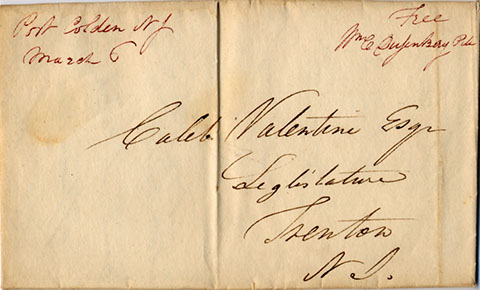 Port Colden NJ
March 6
Free
Wm C Dusenbery PM
Caleb Valentine Esqr
Leglislature
Trenton
N J.